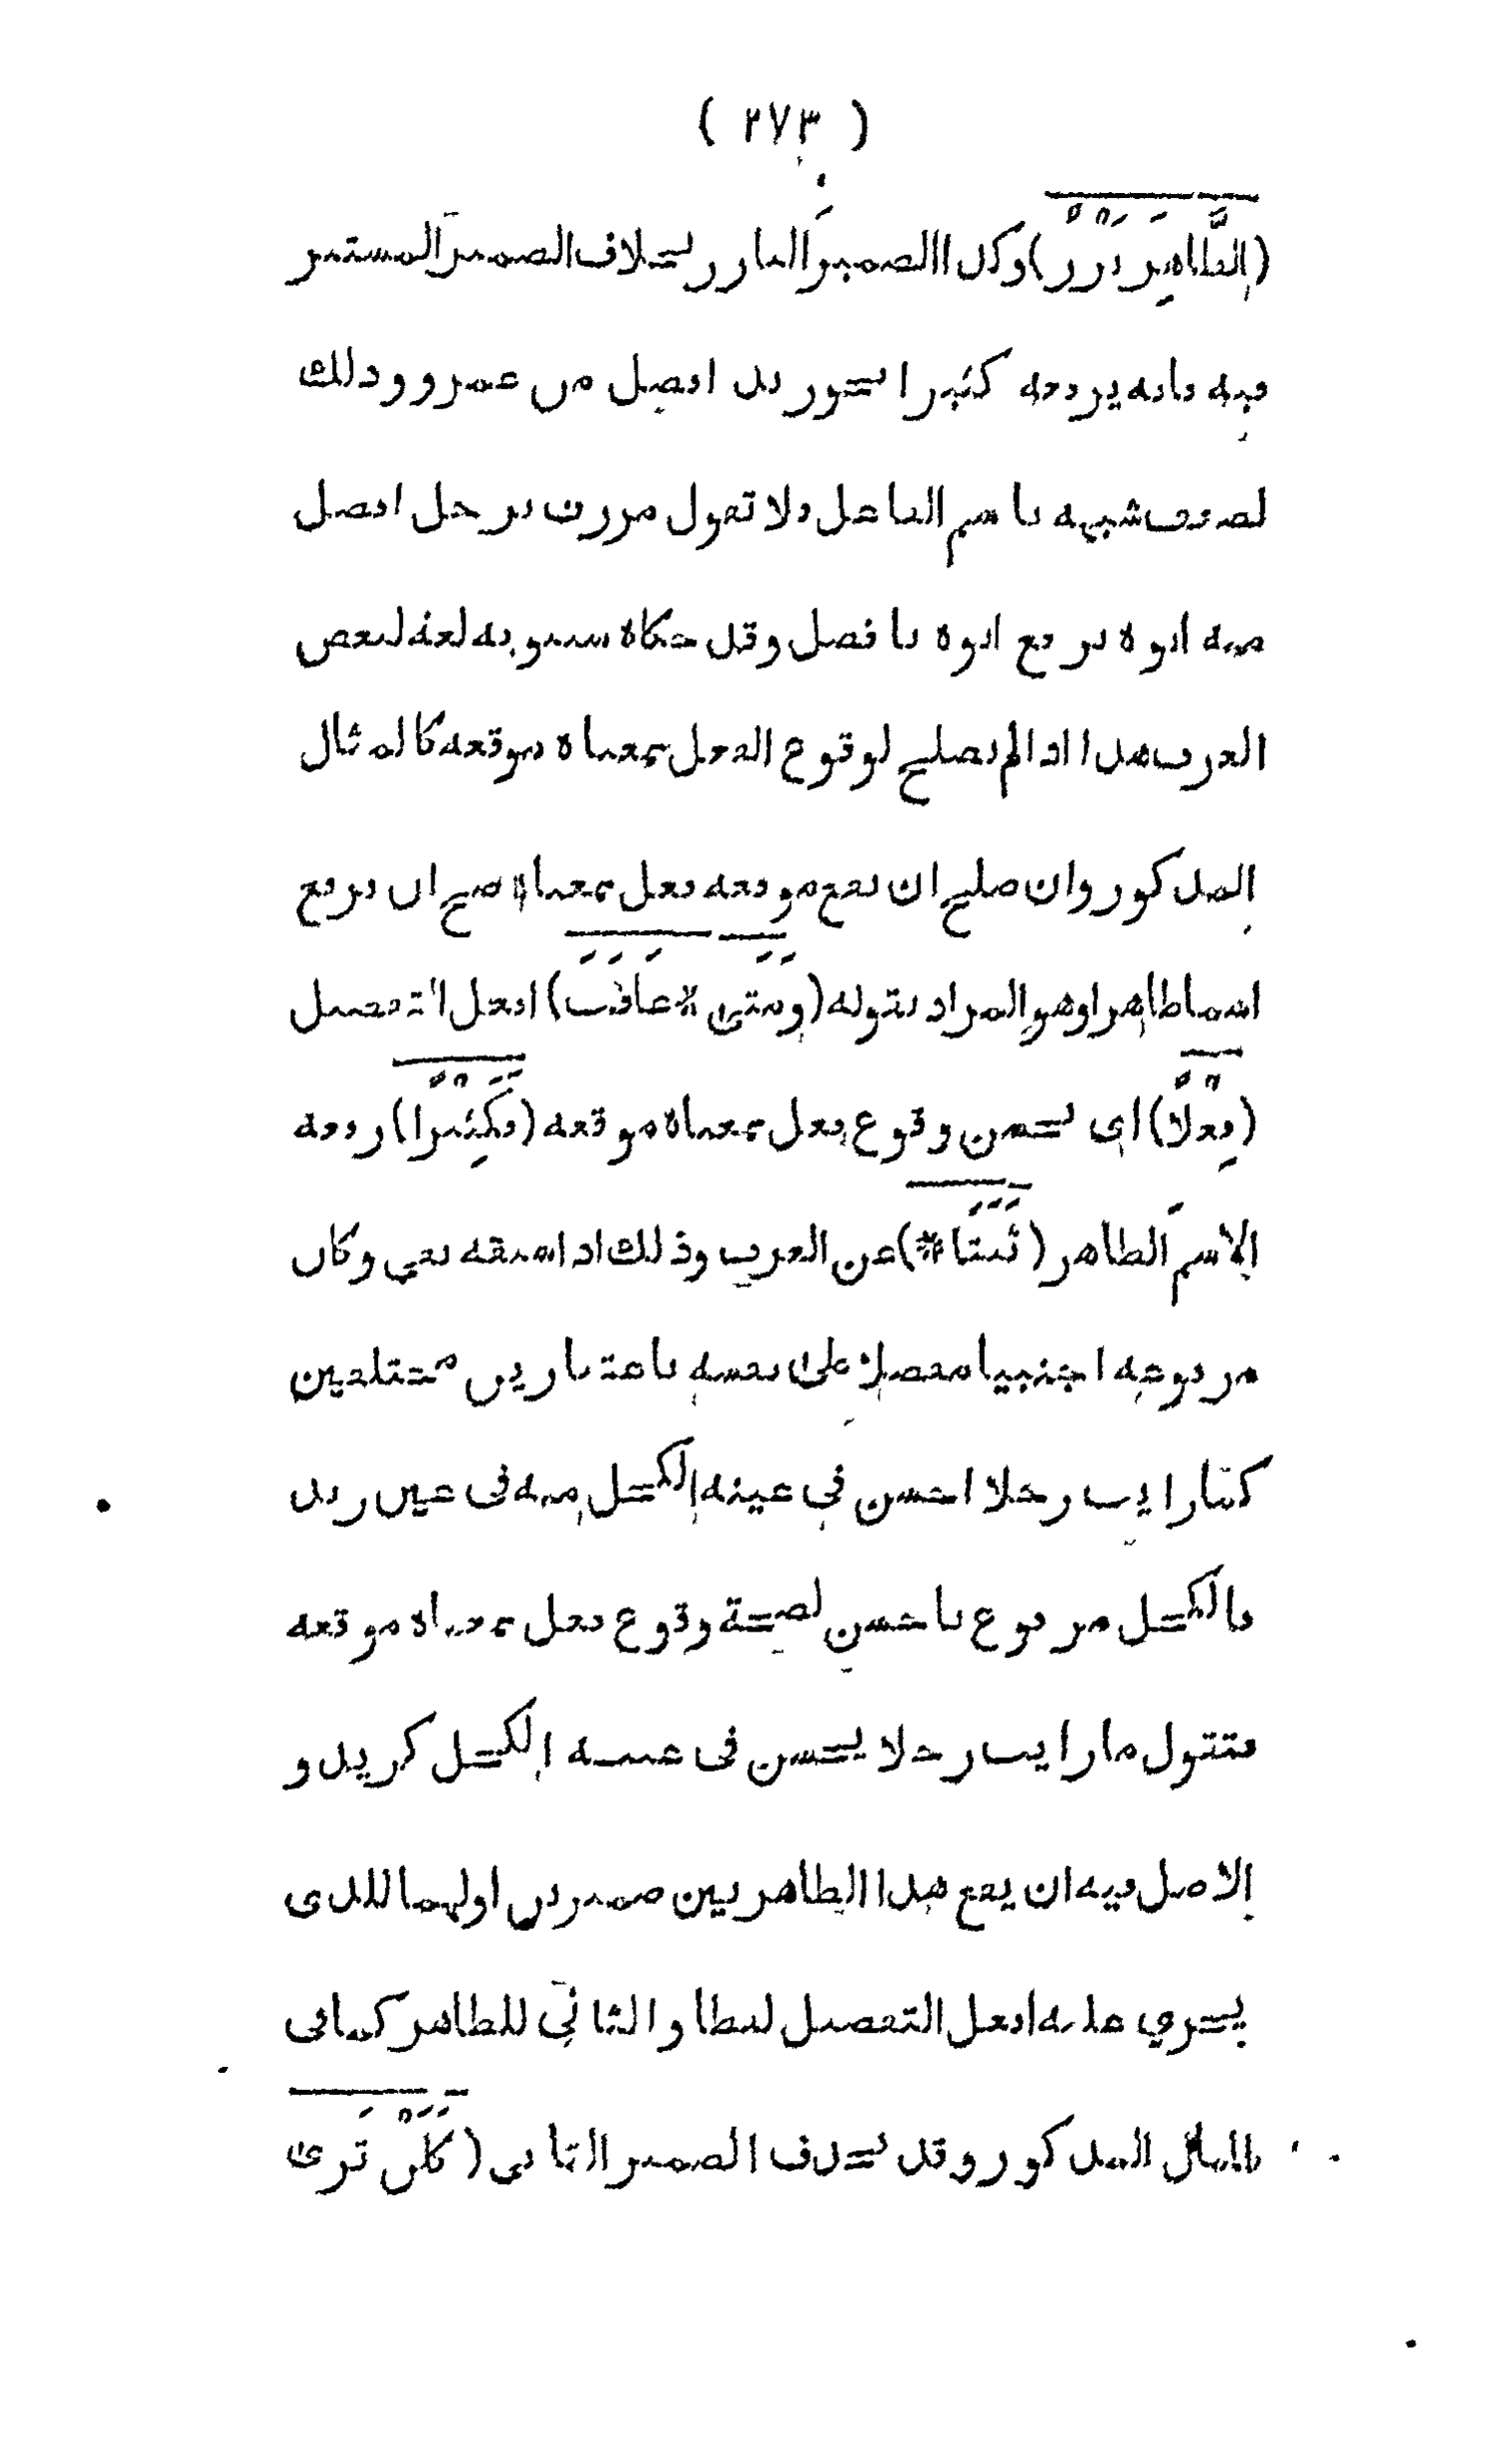 ( ٢٧٣ )
(الظَّاهِرَ نَزْرٌ) وكذا الضمير البارز بخلاف الضمير المستتر
فيه فانه يرفعه كثيرا نحو زيد افضل من عمرو وذلك
لضعف شبهه باسم الفاعل فلا تقول مررت برجل افضل
منه ابوه برفع ابوه بافضل وقد حكاه سيبويه لغة لبعض
العرب هذا اذا لم يصلح لوقوع الفعل بمعناه موقعه كالمثال
المذكور وان صلح ان يقع موقعه فعل بمعناه صح ان يرفع
اسما ظاهرا وهو المراد بقوله (وَمَتَى * عَاقَبَ) افعل التفضيل
(فِعْلًا) اى يحسن وقوع فعل بمعناه موقعه (فَكَثِيْرًا) رفعه
الاسمَ الظاهر (ثَبَتَا *) عن العرب وذلك اذا سبقه نفي وكان
مرفوعه اجنبيا مفضلا على نفسه باعتبارين مختلفين
كما رايت رجلا احسن في عينه الكحل منه فى عين زيد
فالكحل مرفوع باحسن لصحة وقوع فعل بمعناه موقعه
فتقول ما رايت رجلا يحسن فى عينه الكحل كزيد و
الاصل فيه ان يقع هذا الظاهر بين ضميرين اولهما للذى
يجري عليه افعل التفضيل لفظا والثانى للظاهر كما فى
المثال المذكور وقد يحذف الضمير الثانى (كَلَنْ تَرى